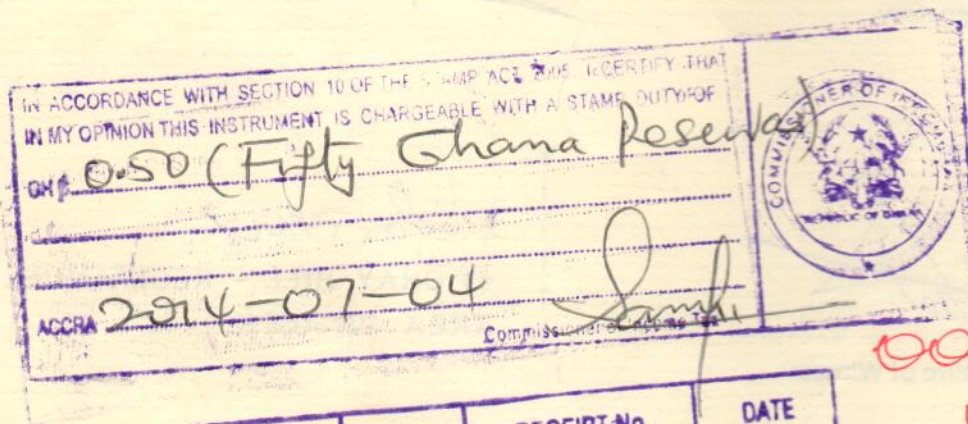 IN ACCORDANCE WITH SECTION 10 OF THE STAMP ACT 2005, I CERTIFY THAT
IN MY OPINION THIS INSTRUMENT IS CHARGEABLE WITH A STAMP DUTY OF
GH¢ 0.50 (Fifty Ghana Pesewas)
ACCRA 2014-07-04
Commissioner of Income Tax
COMMISSIONER OF
REPUBLIC OF GHANA
00
RECEIPT No
DATE